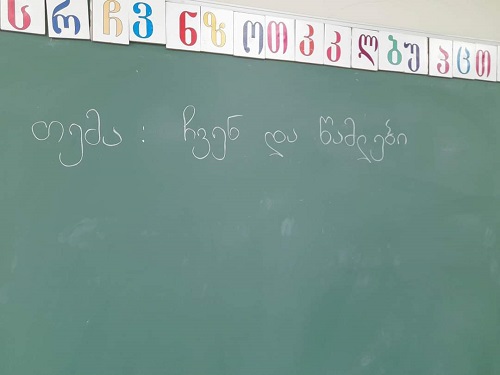 ს რ ჩ ვ ნ ზ ო თ კ კ ლ ბ უ ჰ ც თ
თემა : ჩვენ და წამლები